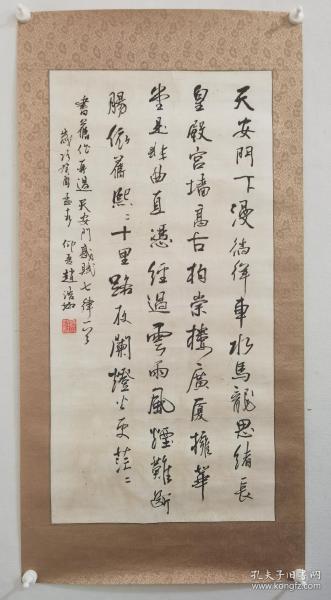 天安門下漫徜徉車水馬龍思緒長
皇殿宮墙高古柏崇樓廣厦擁華
堂是非曲直憑經過雲雨風煙難斷
腸依舊熙熙十里路夜闌燈火更茫茫
書舊作再過天安門感賦七律一首
歲次癸酉孟 趙浩
孔夫子旧书网